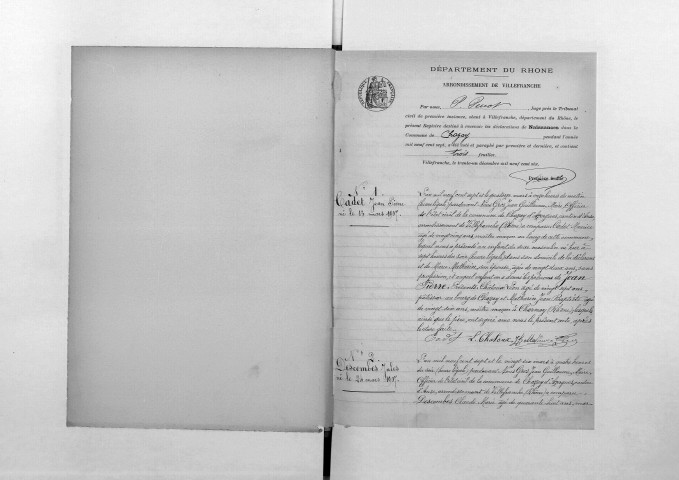 DÉPARTEMENT DU RHONE
ARRONDISSEMENT DE VILLEFRANCHE
Par nous, P. Perrot, Juge près le Tribunal
civil de première instance, séant à Villefranche, département du Rhône, le
présent Registre destiné à recevoir les déclarations de Naissances dans la
Commune de Chazay pendant l'année
mil neuf cent sept, a été coté et paraphé par première et dernière, et contient
trois feuillets.
Villefranche, le trente-un décembre mil neuf cent six.
Premier feuillet
N° 1
Cadet Jean Pierre
né le 13 mars 1907.
L'an mil neuf cent sept et le quatorze mars à onze heures du matin
pardevant Nous Gros Jean Guillaume, Maire Officier
de l'état civil de la commune de Chazay d'Azergues, canton d'Anse
arrondissement de Villefranche (Rhône) a comparu Cadet
âgé de vingt neuf ans, maître maçon au bourg de cette commune,
lequel nous a présenté un enfant du sexe masculin né hier à
sept heures du soir heure légale, dans son domicile, de lui déclarant
et de Marie Mathurin, son épouse, âgée de vingt deux ans, sans
profession, et auquel enfant il a donné les prénoms de Jean
Pierre. Présents: Chataux Léon âgé de vingt sept ans,
pâtissier au bourg de Chazay et Mathurin Jean Baptiste âgé
de vingt six ans, maître maçon à Charnay (Rhône), lesquels
ainsi que le père, ont signé avec nous le présent acte, après
lecture faite.
Cadet L. Chataux Mathurin Gros
N° 2
Descombes Jules
né le 20 mars 1907.
L'an mil neuf cent sept et le vingt un mars à quatre heures
du soir heure légale, pardevant Nous Gros Jean Guillaume, Maire
Officier de l'état civil de la commune de Chazay d'Azergues, canton
d'Anse, arrondissement de Villefranche (Rhône), a comparu
Descombes Claude Marie âgé de quarante huit ans,